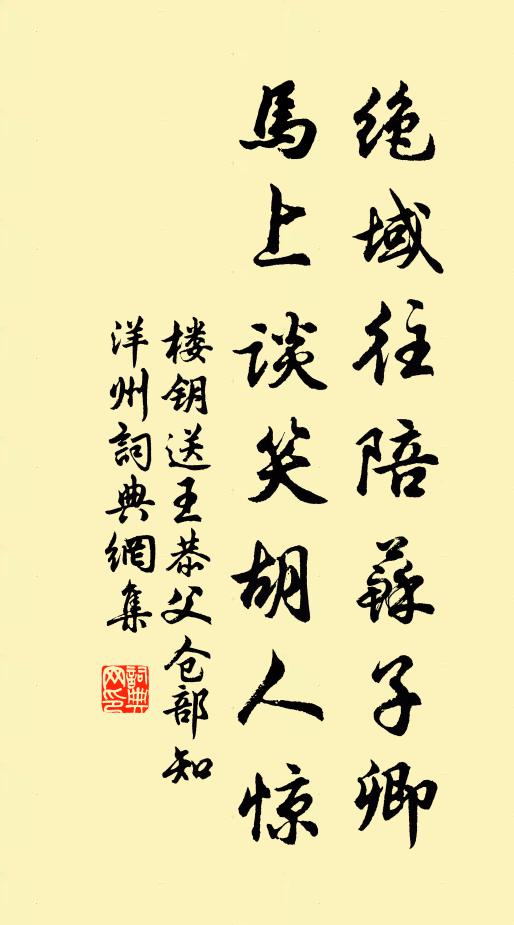 绝域往陪蘇子卿
馬上谈笑胡人惊
楼钥送王恭父仓部知
洋州詞典網集
詞典
网印